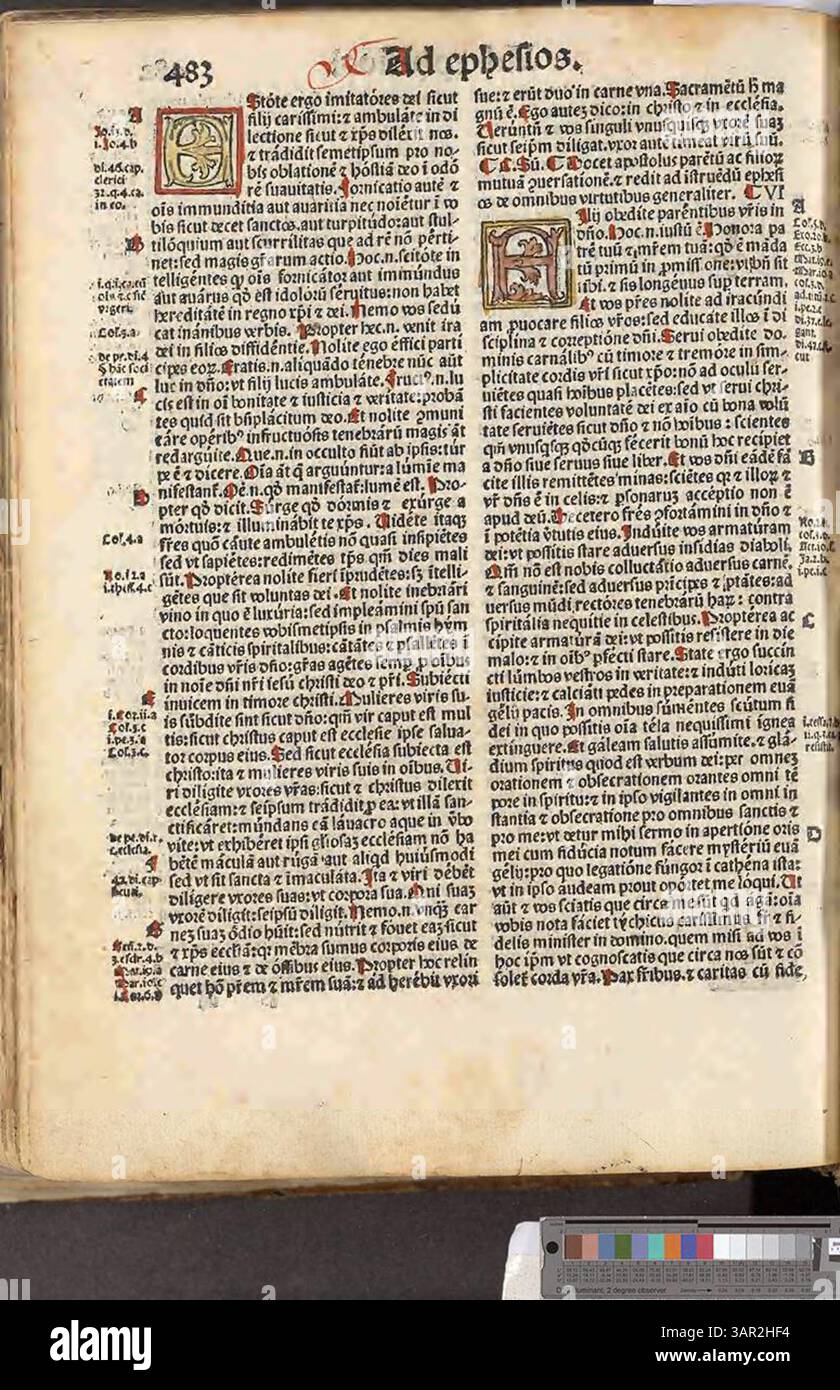 483
Ad ephesios.
Stóte ergo imitatóres dei sicut
filij carissimi: ⁊ ambuláte in di
lectione sicut ⁊ xp̄s diléxit nos.
⁊ trádidit semetipsum pro no-
bis oblationē ⁊ hóstiā deo ī odó
rē suauitatis. Fornicatio autē ⁊
oīs immunditia aut auaritia nec noīetur ī vo
bis sicut decet sanctos. aut turpitúdo: aut stul-
tilóquium aut scurrilitas que ad rē nō pérti-
net: sed magis gr̄arum actio. Hoc.n. scitóte in
telligentes qp̄ oīs fornicátor aut immúndus
aut auárus qd̄ est idolorū séruitus: non habet
hereditátē in regno xp̄i ⁊ dei. Nemo vos sedú
cat inánibus verbis. Propter hec.n. venit ira
dei in filios diffidéntie. Nolite ergo éffici parti
cipes eoꝝ. Eratis.n. aliquádo ténebre nūc aūt
luc in dn̄o: vt filij lucis ambuláte. Fruct⁹.n. lu
cis est in oī bonitate ⁊ iusticia ⁊ veritate: probā
tes quid sit bn̄plácitum deo. Et nolite ꝯmuni
cáre opérib⁹ infructuósis tenebrárū magis āt
redargúite. Que.n. in occulto fiūt ab ipsis: tur
pe ē ⁊ dicere. Oīa āt q̄ arguúntur: a lumīe ma
nifestant̄. Oē.n. qd̄ manifestat̄: lumē est. Pro-
pter qd̄ dicit. Surge qd̄ dórmis ⁊ exúrge a
mórtuis: ⁊ illuminábit te xp̄s. Uidéte itaqꝫ
fr̄es quō cáute ambulétis nō quasi insipiētes
sed vt sapiētes: rediméntes tp̄s qm̄ dies mali
sūt. Proptérea nolite fieri īprudētes: sꝫ ītelli-
gētes que sit voluntas dei. Et nolite inebriári
vino in quo ē luxúria: sed impleámini spū san
cto: loquentes vobismetipsis in psalmis hym
nis ⁊ cāticis spiritalibus: cātátēs ⁊ psallétes ī
cordibus vr̄is dn̄o: gr̄as agētes semp̱ p̱ oībus
in noīe dn̄i nr̄i iesū christi deo ⁊ p̄ri. Subiécti
inuicem in timore christi. Mulieres viris su-
is súbdite sint sicut dn̄o: qm̄ vir caput est mul
tis: sicut christus caput est ecclesie ipse salua-
tor corpus eius. Sed sicut ecclésia subiecta est
christo: ita ⁊ mulieres viris suis in oībus. Ui-
ri diligite vxores vr̄as: sicut ⁊ christus dilexit
ecclésiam: ⁊ seipsum trádidit p̱ ea: vt illā san-
ctificáret: múndans eā lauácro aque in v̄bo
vite: vt exhibéret ipsi gl̄iosaꝫ ecclésiam nō ha
bētē máculā aut rúgā aut aliqd huiúsmodi
sed vt sit sancta ⁊ īmaculáta. Ita ⁊ viri débēt
diligere vxores suas: vt corpora sua. Qui suaꝫ
vxorē diligit: seipsū diligit. Nemo.n. vnqꝫ car
neꝫ suaꝫ ódio hūit: sed nútrit ⁊ fouet eaꝫ sicut
⁊ xp̄s eccl̄iā: qꝛ mēbra sumus corporis eius de
carne eius ⁊ de óssibus eius. Propter hoc relin
quet hō pr̄em ⁊ mr̄em suā: ⁊ adherébit vxori
sue: ⁊ erūt duo in carne vna. Sacramētū h̄ ma
gnū ē. Ego auteꝫ dico: in christo ⁊ in ecclésia.
Uerūtn̄ ⁊ vos singuli vnusquisqꝫ vxorē suaꝫ
sicut seipm̄ diligat. vxor autē timeat virū suū.
Docet apostolus parētū ac filioꝝ
mutuā ꝯuersationē. ⁊ redit ad istruēdū ephesi
os de omnibus virtutibus generaliter. C VI
Ilij obedite paréntibus vr̄is in
dn̄o. Hoc.n. iustū ē. Honora pa
trē tuū ⁊ mr̄em tuā: qd̄ ē mādá
tū primū in ꝓmissione: vt bn̄ sit
tibi. ⁊ sis longéuus sup̱ terram.
Et vos pr̄es nolite ad iracúndi
am ꝓuocare filios vr̄os: sed educate illos ī di
sciplina ⁊ correptiōne dn̄i. Serui obedite do-
minis carnálib⁹ cū timore ⁊ tremóre in sim-
plicitate cordis vr̄i sicut xp̄o: nō ad oculū ser-
uiétes quasi hoībus placétes: sed vt serui chri-
sti facientes voluntatē dei ex aīo cū bona volū
tate seruiētes sicut dn̄o ⁊ nō hoībus: scientes
qm̄ vnusqꝫsqꝫ qd̄cūqꝫ fécerit bonū hoc recipiet
a dn̄o siue seruus siue liber. Et vos dn̄i eádē fá
cite illis remittētes minas: sciétes qꝛ ⁊ illoꝝ ⁊
vr̄ dn̄s ē in celis: ⁊ p̱sonarum accéptio non ē
apud deū. De cetero fr̄es ꝯfortámini in dn̄o ⁊
ī poténtia v̄tutis eius. Indúite vos armatúram
dei: vt possitis stare aduersus insidias diaboli.
Qm̄ nō est nobis colluctátio aduersus carnē
⁊ sanguinē: sed aduersus prīcipes ⁊ p̱tátes: ad
uersus mūdi rectóres tenebrárū haꝝ: contra
spiritália nequitie in celestibus. Proptérea ac
cipite armaturā dei: vt possitis resistere in die
malo: ⁊ in oīb⁹ p̱fécti stare. State ergo succin
cti lúmbos vestros in veritate: ⁊ indúti loricaꝫ
iusticie: ⁊ calciáti pedes in preparationem euā
gélij pacis. In omnibus suméntes scútum fi
dei in quo possitis oīa téla nequissimi ígnea
extinguere. Et gáleam salutis assúmite. ⁊ glá-
dium spiritus quod est verbum dei: per omneꝫ
orationem ⁊ obsecrationem orantes omni tē
pore in spiritu: ⁊ in ipso vigilantes in omni in
stantia ⁊ obsecratione pro omnibus sanctis ⁊
pro me: vt detur mihi sermo in apertióne oris
mei cum fidúcia notum fácere mystériū euā
gélij: pro quo legatióne fungor ī cathéna ista:
vt in ipso áudeam prout opórtet me lóqui. Ut
aūt ⁊ vos sciatis que circa me sūt qd agā: oīa
vobis nota fáciet tychicus carissimus fr̄ ⁊ fi-
delis minister in domino. quem misi ad vos ī
hoc ip̄m vt cognoscatis que circa nos sūt ⁊ cō
solet̄ corda vr̄a. Pax fr̄ibus. ⁊ caritas cū fide
alamy
Image ID: 3AR2HF4
www.alamy.com